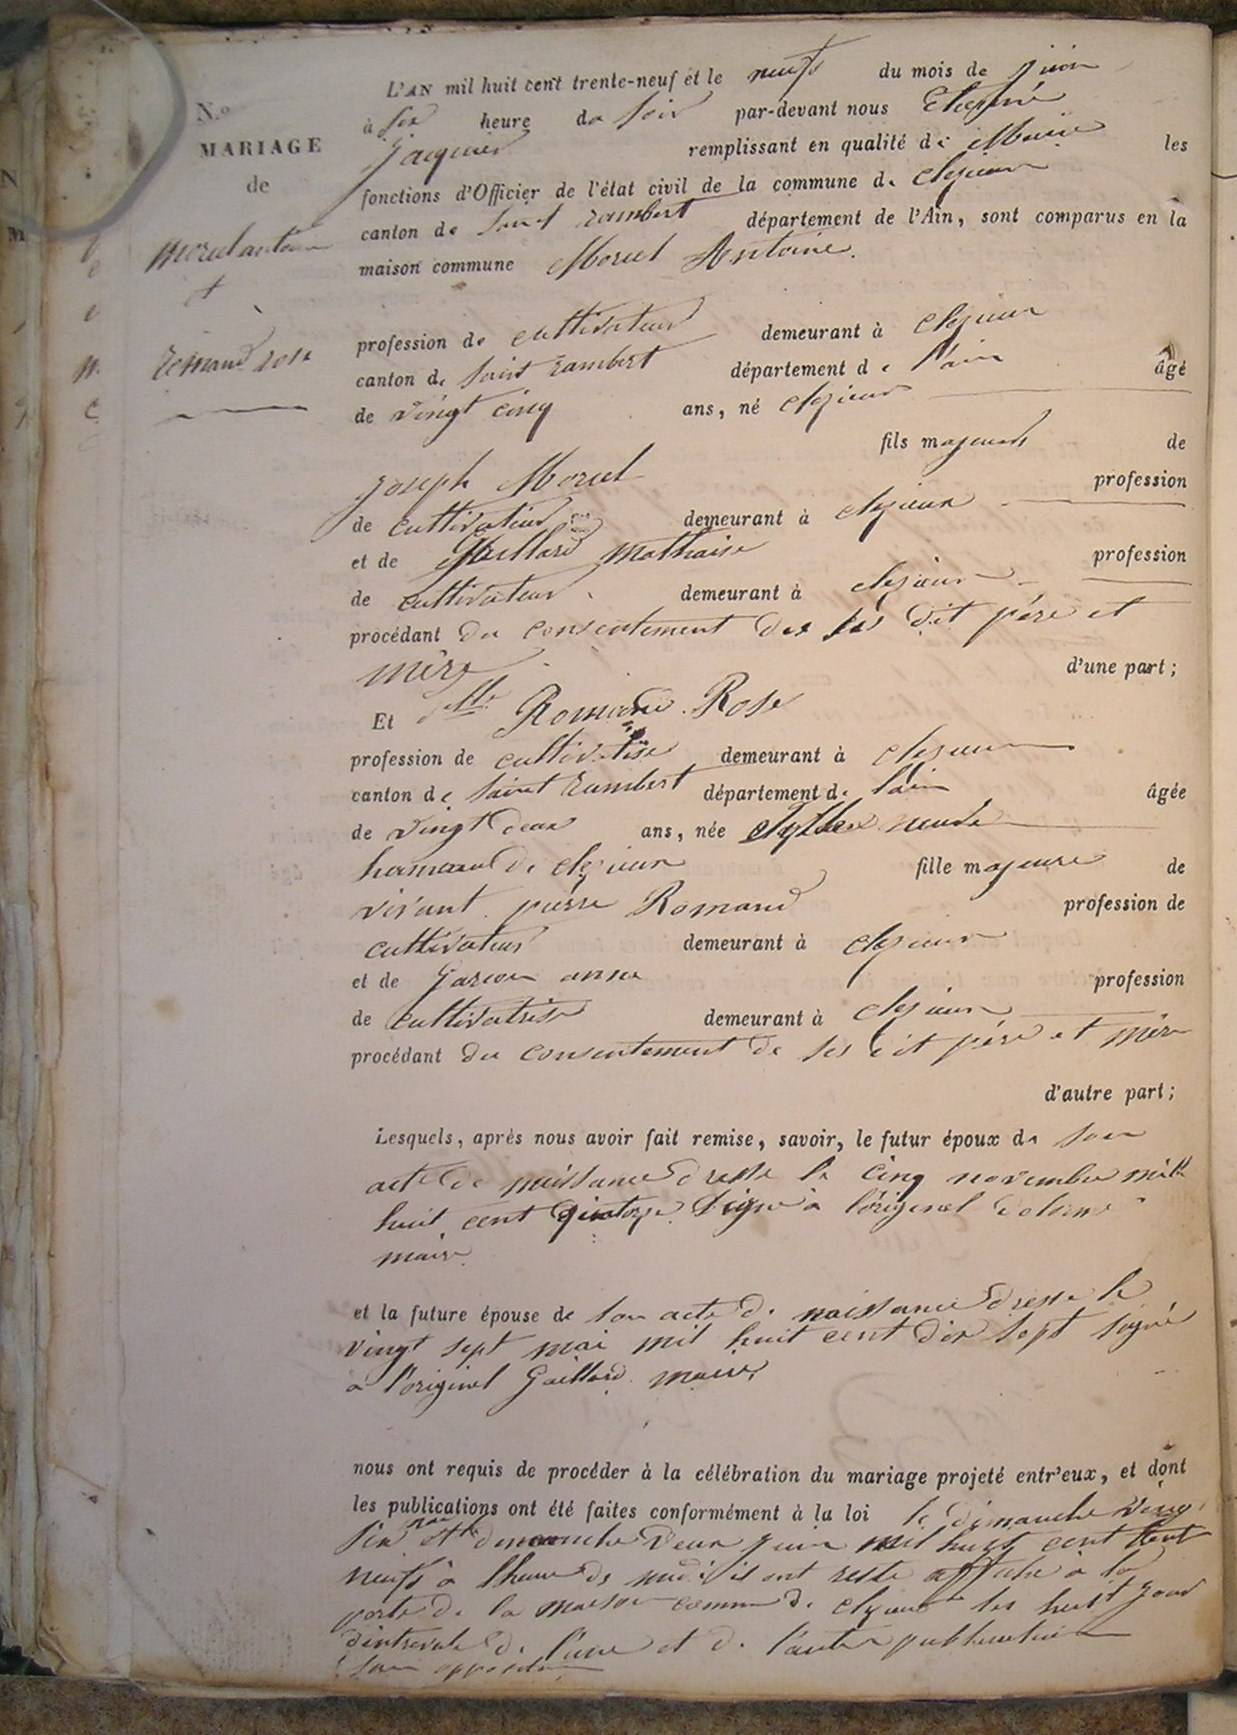 N.o
MARIAGE
de
Morel antoine
et
Romand rose
L'AN mil huit cent trente-neuf et le neufs du mois de juin
à six heure do soir par-devant nous
Jacquier remplissant en qualité de Maire les
fonctions d'Officier de l'état civil de la commune de clezieux
canton de Saint rambert département de l'Ain, sont comparus en la
maison commune Morel Antoine.
profession de cultivateur demeurant à clezieux
canton de Saint rambert département de l'ain âgé
de vingt cinq ans, né clezieux
fils majeur de
Joseph Morel profession
de cultivateur demeurant à clezieux
et de Gaillard profession
de cultivateur demeurant à clezieux
procédant du consentement des ses dit père et
mère d'une part;
Et dlle Romand Rose
profession de cultivatise demeurant à clezieux
canton de Saint rambert département de l'ain âgée
de vingt deux ans, née
de clezieux fille majeure de
vivant pierre Romand profession de
cultivateur demeurant à clezieux
et de anne profession
de cultivatrise demeurant à clezieux
procédant du consentement de ses dit père et mère
d'autre part;
Lesquels, après nous avoir fait remise, savoir, le futur époux de son
acte de naissance dresse le cinq novembre mille
huit cent quatorze Signé à l'originel delorme
maire
et la future épouse de son acte de naissance dresse le
vingt sept mai mil huit cent dix sept signé
a l'originel Gaillard maire
nous ont requis de procéder à la célébration du mariage projeté entr'eux, et dont
les publications ont été faites conformément à la loi le dimanche vingt
six mai et dimanche deux juin mil huit cent trent
neufs à lheure de midi il ont reste affiche à la
porte de la maison commune de clezieux les huit jour
dintervale de l'une et de l'autre publication
sans opposition